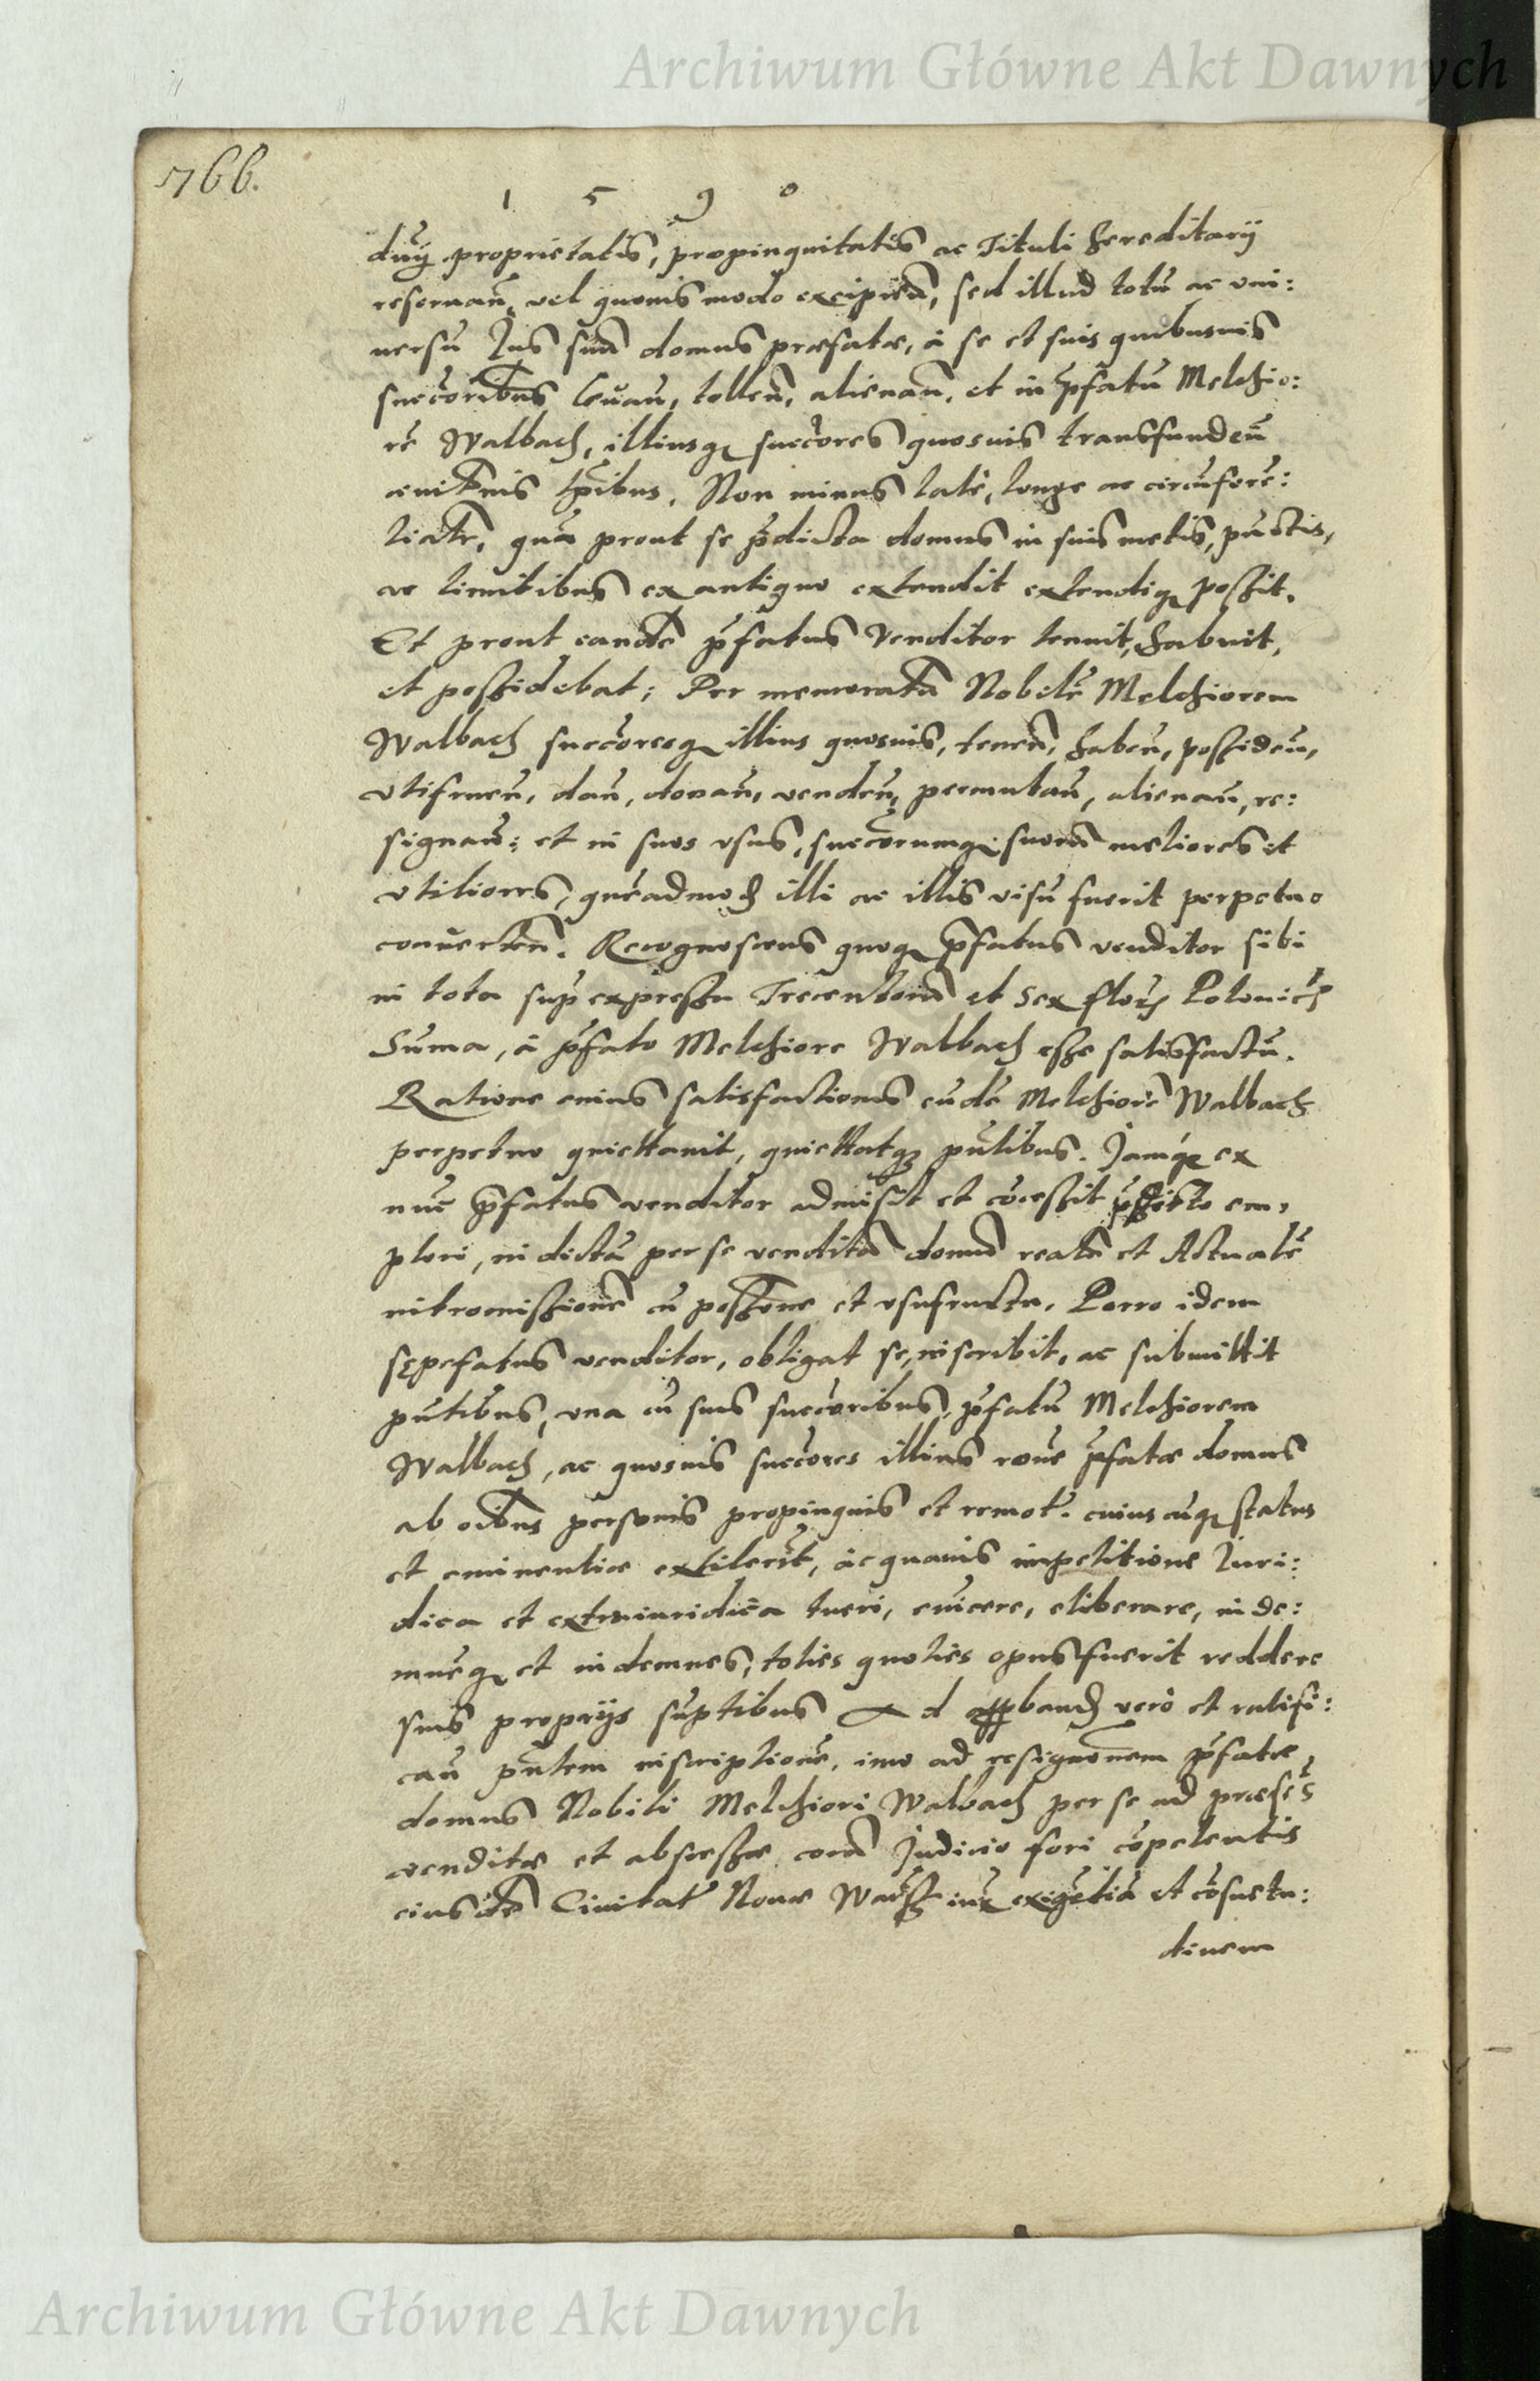 Archiwum Główne Akt Dawnych
766.
1 5 9 0
duij proprietatis, propinquitatis ac Tituli hereditarij
reseruan̄, vel quouismodo excipien̄, sed illud totū ac vni:
uersū Jus suū domus præfatæ, à se et suis quibusuis
succ̄oribus leuan̄, tollen̄, alienan̄, et in p̄fatū Melchio:
rē Walbach, illiusq̨ succ̄ores quosuis transfunden̄
æuit̄nis tp̄ibus. Non minus latè, longe ac circūfere:
tialr̄, quā prout se p̄dicta domus in suis metis, pūctis,
ac limitibus ex antiquo extendit extendiq̨ possit.
Et prout eandē p̄fatus Venditor tenuit, habuit,
et possidebat; Per memoratū Nobilē Melchiorem
Walbach succ̄oresq̨ illius quosuis, tenen̄, haben̄, possiden̄,
vtifruen̄, dan̄, donan̄, venden̄, permutan̄, alienan̄, re:
signan̄; et in suos vsus, succ̄orumq̨ suorū meliores et
vtiliores, quēadmod̄ illi ac illis visū fuerit perpetuo
conuerten̄. Recognoscens quoq̨ p̄fatus venditor sibi
in tota sup̄expressa Trecentorū et Sex flor̄ Polonic̄
Sūma, à p̄fato Melchiore Walbach esse satisfactū.
Ratione cuius satisfactionis eūdē Melchiorē Walbach
perpetuo quiettauit, quiettatq̨ pn̄tibus. Jamq̨ ex
nūc p̄fatus venditor admisit et cōcessit emp
ptori, in dictā per se venditā domū realē et Actualē
intromissionē cū poss̄one et vsufructu. Porro idem
sępefatus venditor, obligat se, inscribit, ac submittit
pn̄tibus, vna cū suis succ̄oribus, p̄fatū Melchiorem
Walbach, ac quosuis succ̄ores illius rōne p̄fatæ domus
ab oībus personis propinquis et remot̄. cuiuscūq̨ status
et eminentiæ extiterīt, ac quauis impetitione Juri:
dica et extraiuridica tueri, euicere, eliberare, inde:
mnēq̨ et indemnes, toties quoties opus fuerit reddere
suis proprijs sūptibus Ad app̄band̄ verò et ratifi:
can̄ pn̄tem inscriptionē, imo ad resignōnem p̄fatæ
domus Nobili Melchiori Walbach per se ad præsēs
venditæ et abscessæ corā Judicio fori cōpetentis
eiusdē Ciuitat̄ Nouæ Wars̄ iux̄ exigētiā et cōsuetu:
dinem
Archiwum Główne Akt Dawnych